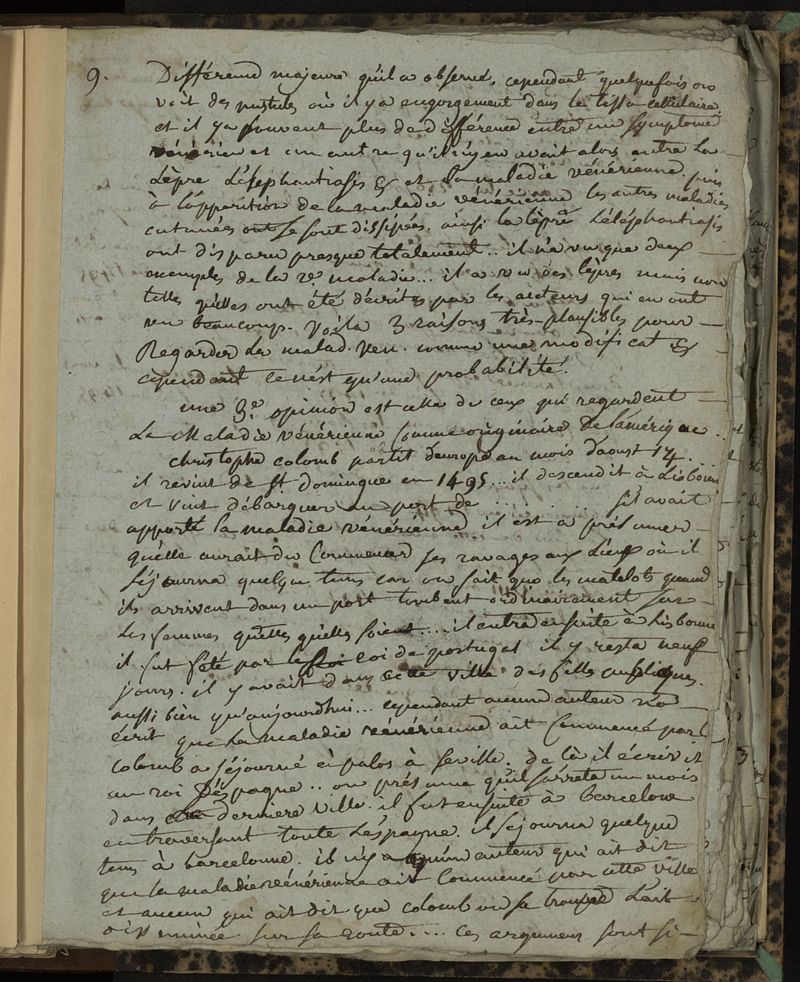 9. Différend majeure qu'il a observé, cependant quelquefois on
voit des pustules où il y a engorgement dans le tissu cellulaire
et il y a souvent plus de différence entre un symptome
vénérien et un autre qu'il n'y en avait alors entre la
Lèpre L'élephantiasis & et la maladie vénérienne. puis
à l'apparition de la maladie vénérienne les autres maladies
cutanées ont se sont dissipées. ainsi la lèpre L'éléphantiasis
ont disparu presque totalement... il n'a vu que deux
exemples de la 2e maladie... il a vu des lèpres mais non
telles qu'elles ont été décrites par les auteurs qui en ont
vu beaucoup. voila 3 raisons très plausibles pour
Regarder La malad. ven. comme une modificat &
cependant ce n'est qu'une probabilité.
une 3e opinion est celle de ceux qui regardent
La Maladie vénérienne comme originaire De l'amérique.
christophe colomb partit d'europe au mois d'aoust
il revint de St domingue en 1495... il descendit à Lisbonne
et vint débarquer au port de .......... s'il avait
apporté la maladie vénérienne il est à présumer
qu'elle aurait du Commencer ses ravages aux Lieux où il
séjourna quelque tems car on sait que les matelots quand
ils arrivent dans un port tombent ordinairement sur
Les femmes quelles qu'elles soient.... il entra ensuite à Lisbonne
il fut fêté par le roi de portugal il y resta neuf
jours. il y avait dans cette ville des filles publiques.
aussi bien qu'aujourd'hui... cependant aucun auteur n'a
écrit que la maladie vénérienne ait Commencé par là
Colomb a séjourné à palos à séville. de là il écrivit
au roi D'éspagne.. on présume qu'il s'arreta un mois
dans dernière ville. il fut ensuite à Barcelone
en traversant toute L'espagne. il séjourna quelque
tems à barcelonne. il n'y a aucun auteur qui ait dit
que la maladie vénérienne ait Commencé par cette ville
et aucun qui ait dit que colomb ou sa troupe L'ait
disséminée sur sa route.... ces argumens sont si-